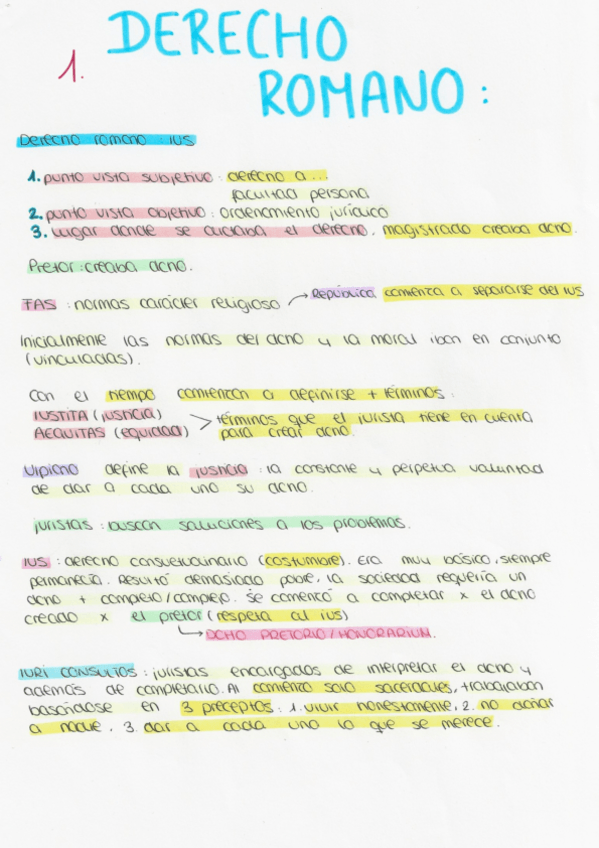 DERECHO
1.
ROMANO:
Derecho romano: IUS
1. punto vista subjetivo: derecho a...
facultad persona
2. punto vista objetivo: ordenamiento jurídico
3. Lugar donde se dictaba el derecho. magistrado creaba dcho.
Pretor: creaba dcho.
FAS: normas carácter religioso → República comienza a separarse del IUS
Inicialmente las normas del dcho y la moral iban en conjunto
(vinculadas).
Con el tiempo comienzan a definirse + términos:
IUSTITA (justicia)
AEQUITAS (equidad) > términos que el jurista tiene en cuenta
para crear dcho.
Ulpiano define la justicia: la constante y perpetua voluntad
de dar a cada uno su dcho.
juristas: buscan soluciones a los problemas.
IUS: derecho consuetudinario (costumbre). Era muy básico, siempre
permanecía. Resultó demasiado pobre, la sociedad requería un
dcho + completo/complejo. Se comenzó a completar x el dcho
creado x el pretor (respeta al ius)
→ DCHO PRETORIO/HONORARIUM.
IURI CONSULTOS: juristas encargados de interpretar el dcho y
además de completarlo. Al comienzo solo sacerdotes, trabajaban
basándose en 3 preceptos: 1. vivir honestamente, 2. no dañar
a nadie, 3. dar a cada uno lo que se merece.